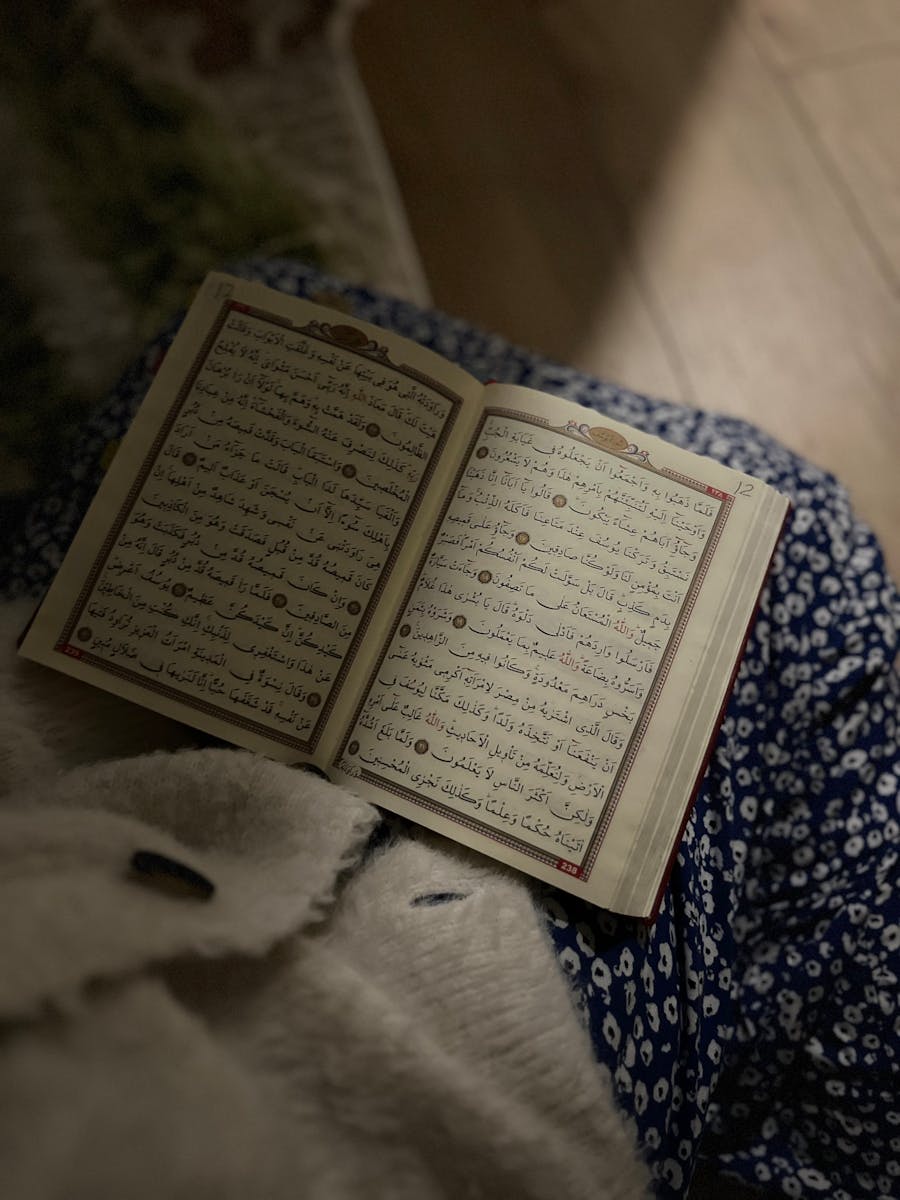 12
فَلَمَّا ذَهَبُوا بِهِ وَاَجْمَعُٓوا اَنْ يَجْعَلُوهُ فِي غَيَابَتِ الْجُبِّ
وَاَوْحَيْنَٓا اِلَيْهِ لَتُنَبِّئَنَّهُمْ بِاَمْرِهِمْ هٰذَا وَهُمْ لَا يَشْعُرُونَ
وَجَٓاؤُٓ اَبَاهُمْ عِشَٓاءً يَبْكُونَ قَالُوا يَٓا اَبَانَٓا اِنَّا ذَهَبْنَا
نَسْتَبِقُ وَتَرَكْنَا يُوسُفَ عِنْدَ مَتَاعِنَا فَاَكَلَهُ الذِّئْبُ وَمَٓا
اَنْتَ بِمُؤْمِنٍ لَنَا وَلَوْ كُنَّا صَادِقِينَ وَجَٓاؤُ عَلٰى قَمِيصِهِ
بِدَمٍ كَذِبٍ قَالَ بَلْ سَوَّلَتْ لَكُمْ اَنْفُسُكُمْ اَمْرًا فَصَبْرٌ
جَمِيلٌ وَاللّٰهُ الْمُسْتَعَانُ عَلٰى مَا تَصِفُونَ وَجَٓاءَتْ سَيَّارَةٌ
فَاَرْسَلُوا وَارِدَهُمْ فَاَدْلٰى دَلْوَهُ قَالَ يَا بُشْرٰى هٰذَا غُلَامٌ
وَاَسَرُّوهُ بِضَاعَةً وَاللّٰهُ عَلِيمٌ بِمَا يَعْمَلُونَ وَشَرَوْهُ بِثَمَنٍ
بَخْسٍ دَرَاهِمَ مَعْدُودَةٍ وَكَانُوا فِيهِ مِنَ الزَّاهِدِينَ
وَقَالَ الَّذِي اشْتَرٰيهُ مِنْ مِصْرَ لِامْرَاَتِهِ اَكْرِمِي مَثْوٰيهُ عَسٰٓى
اَنْ يَنْفَعَنَٓا اَوْ نَتَّخِذَهُ وَلَدًا وَكَذٰلِكَ مَكَّنَّا لِيُوسُفَ فِي
الْاَرْضِ وَلِنُعَلِّمَهُ مِنْ تَأْوِيلِ الْاَحَادِيثِ وَاللّٰهُ غَالِبٌ عَلٰٓى اَمْرِهِ
وَلٰكِنَّ اَكْثَرَ النَّاسِ لَا يَعْلَمُونَ وَلَمَّا بَلَغَ اَشُدَّهُٓ
اٰتَيْنَاهُ حُكْمًا وَعِلْمًا وَكَذٰلِكَ نَجْزِي الْمُحْسِنِينَ
12
وَرَاوَدَتْهُ الَّتِي هُوَ فِي بَيْتِهَا عَنْ نَفْسِهِ وَغَلَّقَتِ الْاَبْوَابَ وَقَالَتْ
هَيْتَ لَكَ قَالَ مَعَاذَ اللّٰهِ اِنَّهُ رَبِّٓي اَحْسَنَ مَثْوَايَ اِنَّهُ لَا يُفْلِحُ
الظَّالِمُونَ وَلَقَدْ هَمَّتْ بِهِ وَهَمَّ بِهَا لَوْلَٓا اَنْ رَاٰ بُرْهَانَ
رَبِّهِ كَذٰلِكَ لِنَصْرِفَ عَنْهُ السُّٓوءَ وَالْفَحْشَٓاءَ اِنَّهُ مِنْ عِبَادِنَا
الْمُخْلَصِينَ وَاسْتَبَقَا الْبَابَ وَقَدَّتْ قَمِيصَهُ مِنْ دُبُرٍ
وَاَلْفَيَا سَيِّدَهَا لَدَا الْبَابِ قَالَتْ مَا جَزَٓاءُ مَنْ اَرَادَ
بِاَهْلِكَ سُٓوءًا اِلَّٓا اَنْ يُسْجَنَ اَوْ عَذَابٌ اَلِيمٌ قَالَ
هِيَ رَاوَدَتْنِي عَنْ نَفْسِي وَشَهِدَ شَاهِدٌ مِنْ اَهْلِهَا اِنْ
كَانَ قَمِيصُهُ قُدَّ مِنْ قُبُلٍ فَصَدَقَتْ وَهُوَ مِنَ الْكَاذِبِينَ
وَاِنْ كَانَ قَمِيصُهُ قُدَّ مِنْ دُبُرٍ فَكَذَبَتْ وَهُوَ
مِنَ الصَّادِقِينَ فَلَمَّا رَاٰ قَمِيصَهُ قُدَّ مِنْ دُبُرٍ قَالَ اِنَّهُ مِنْ
كَيْدِكُنَّ اِنَّ كَيْدَكُنَّ عَظِيمٌ يُوسُفُ اَعْرِضْ
عَنْ هٰذَا وَاسْتَغْفِرِي لِذَنْبِكِ اِنَّكِ كُنْتِ مِنَ الْخَاطِـِٔينَ
وَقَالَ نِسْوَةٌ فِي الْمَدِينَةِ امْرَاَتُ الْعَزِيزِ تُرَاوِدُ فَتٰيهَا
عَنْ نَفْسِهِ قَدْ شَغَفَهَا حُبًّا اِنَّا لَنَرٰيهَا فِي ضَلَالٍ مُبِينٍ